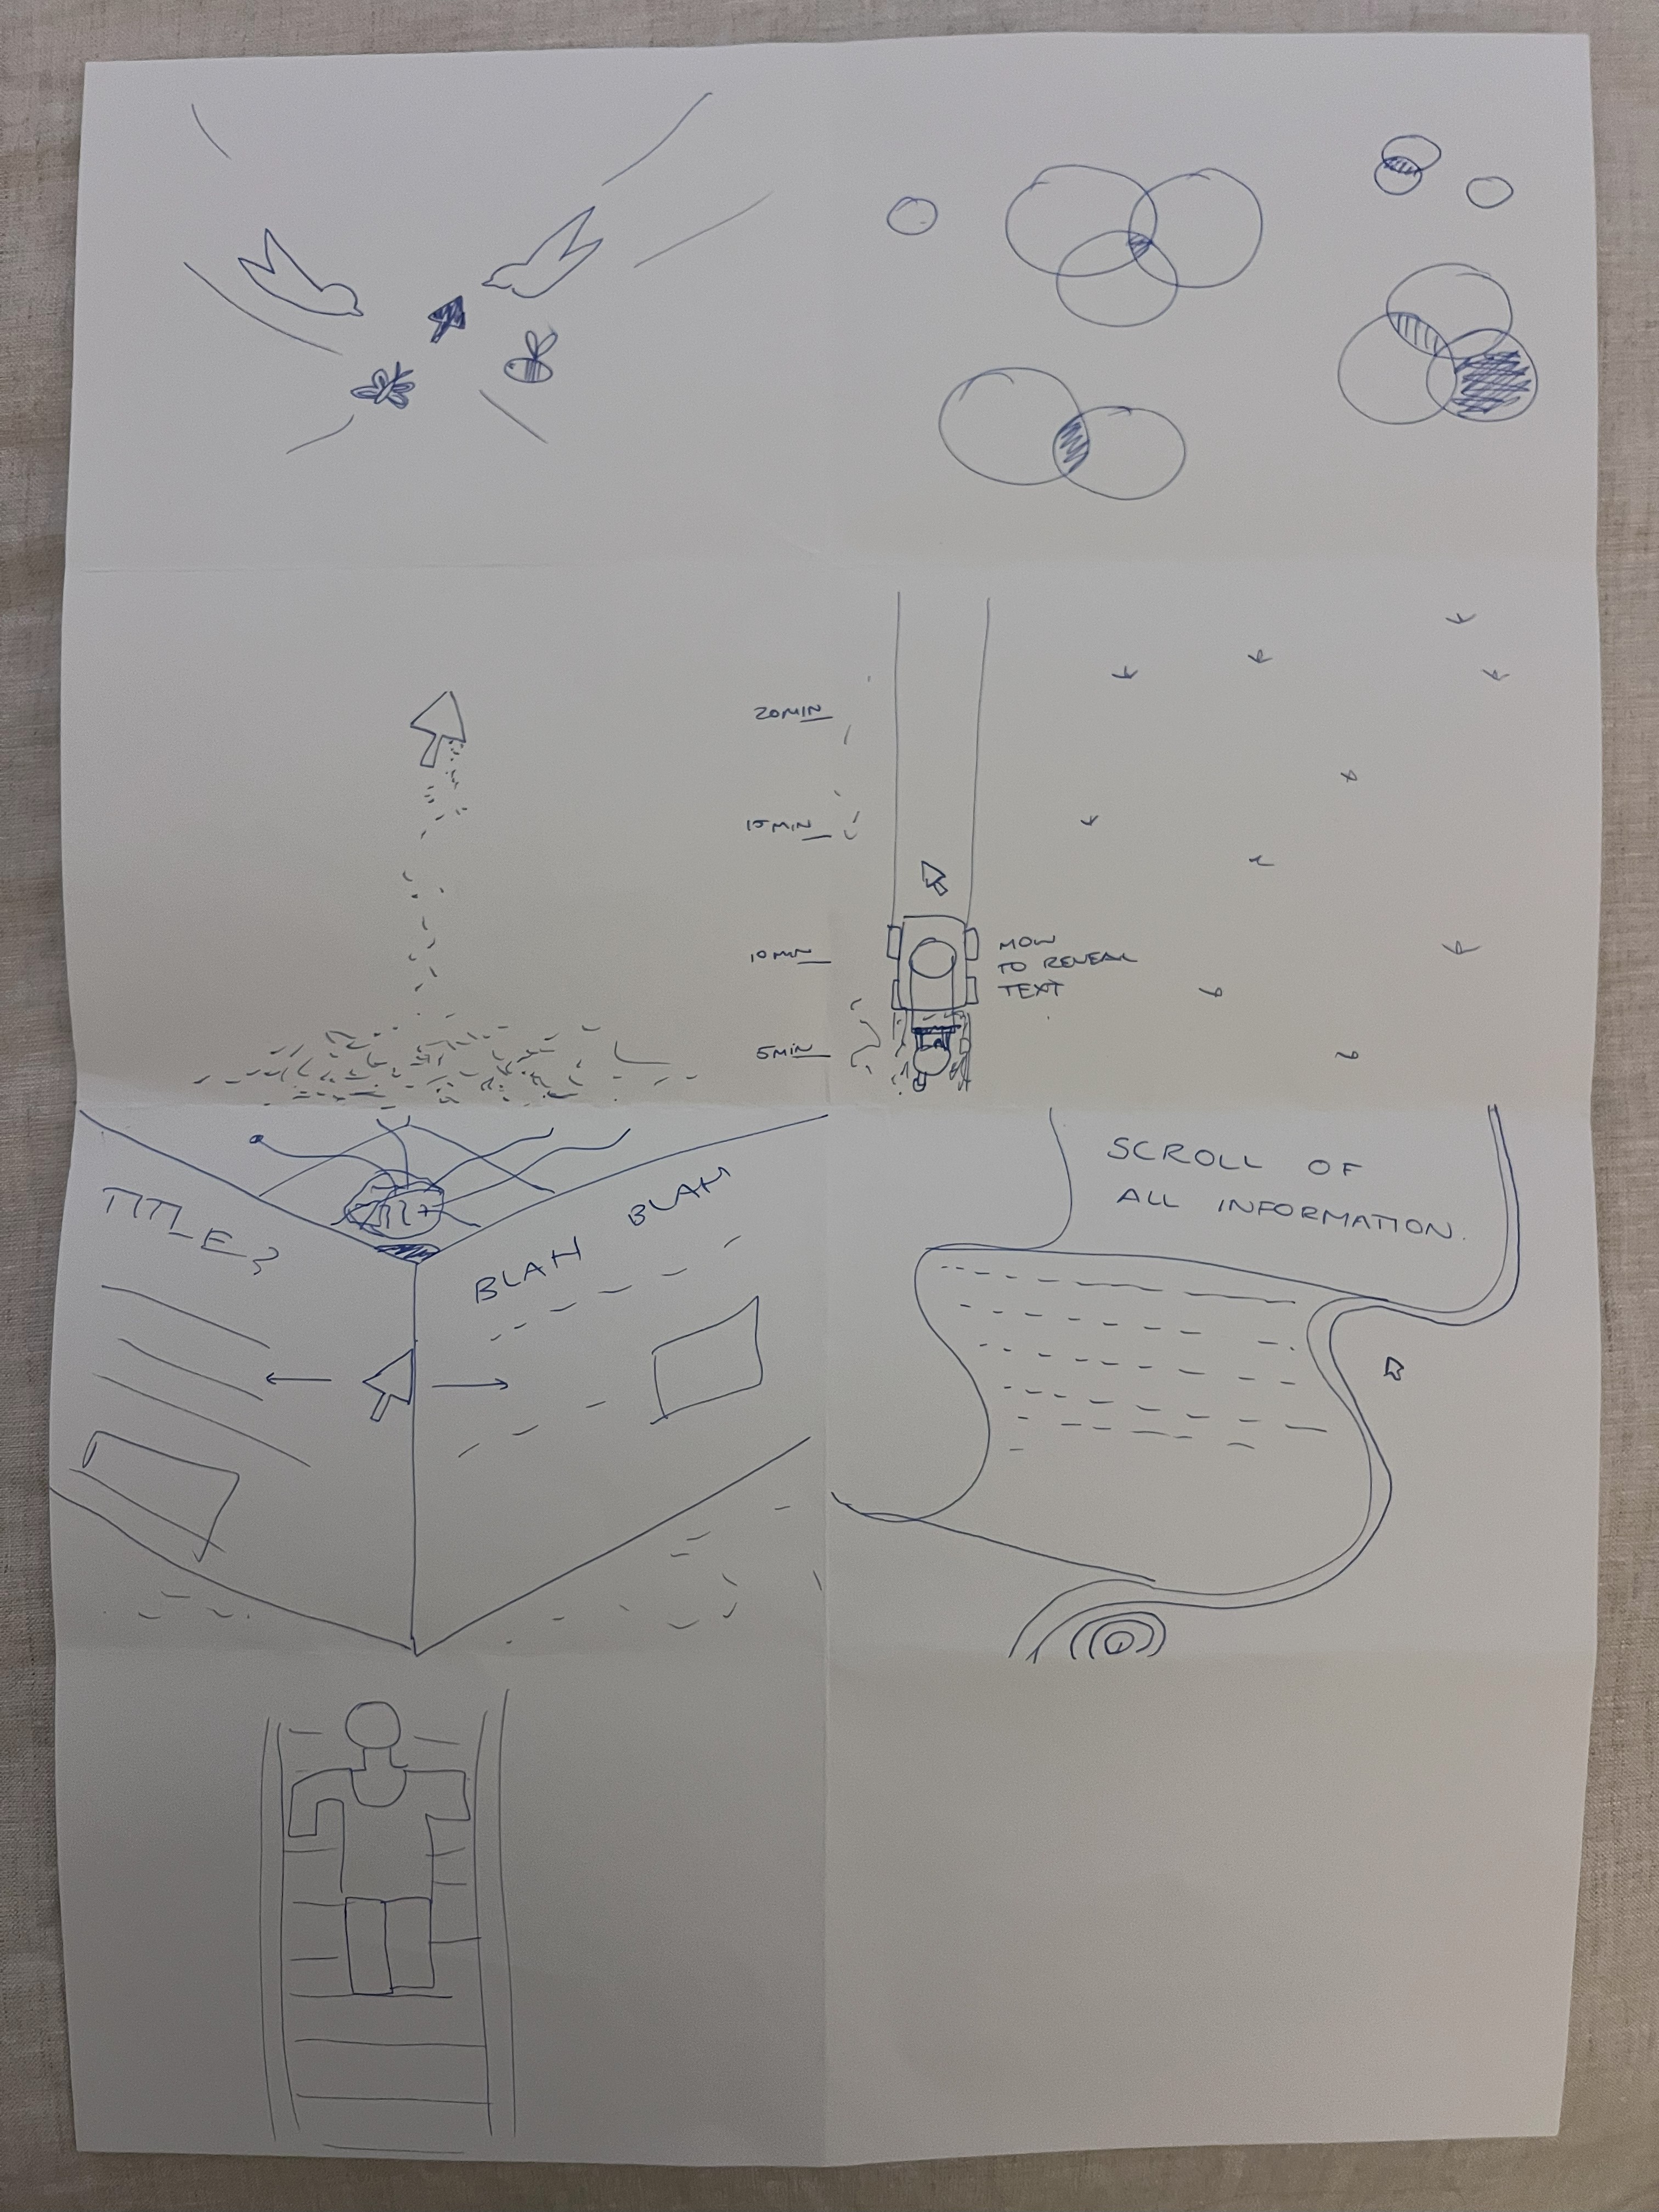 20MIN
15MIN
10MIN
5MIN
MOW
TO REVEAL
TEXT
TITLE?
BLAH BLAH
SCROLL OF
ALL INFORMATION.